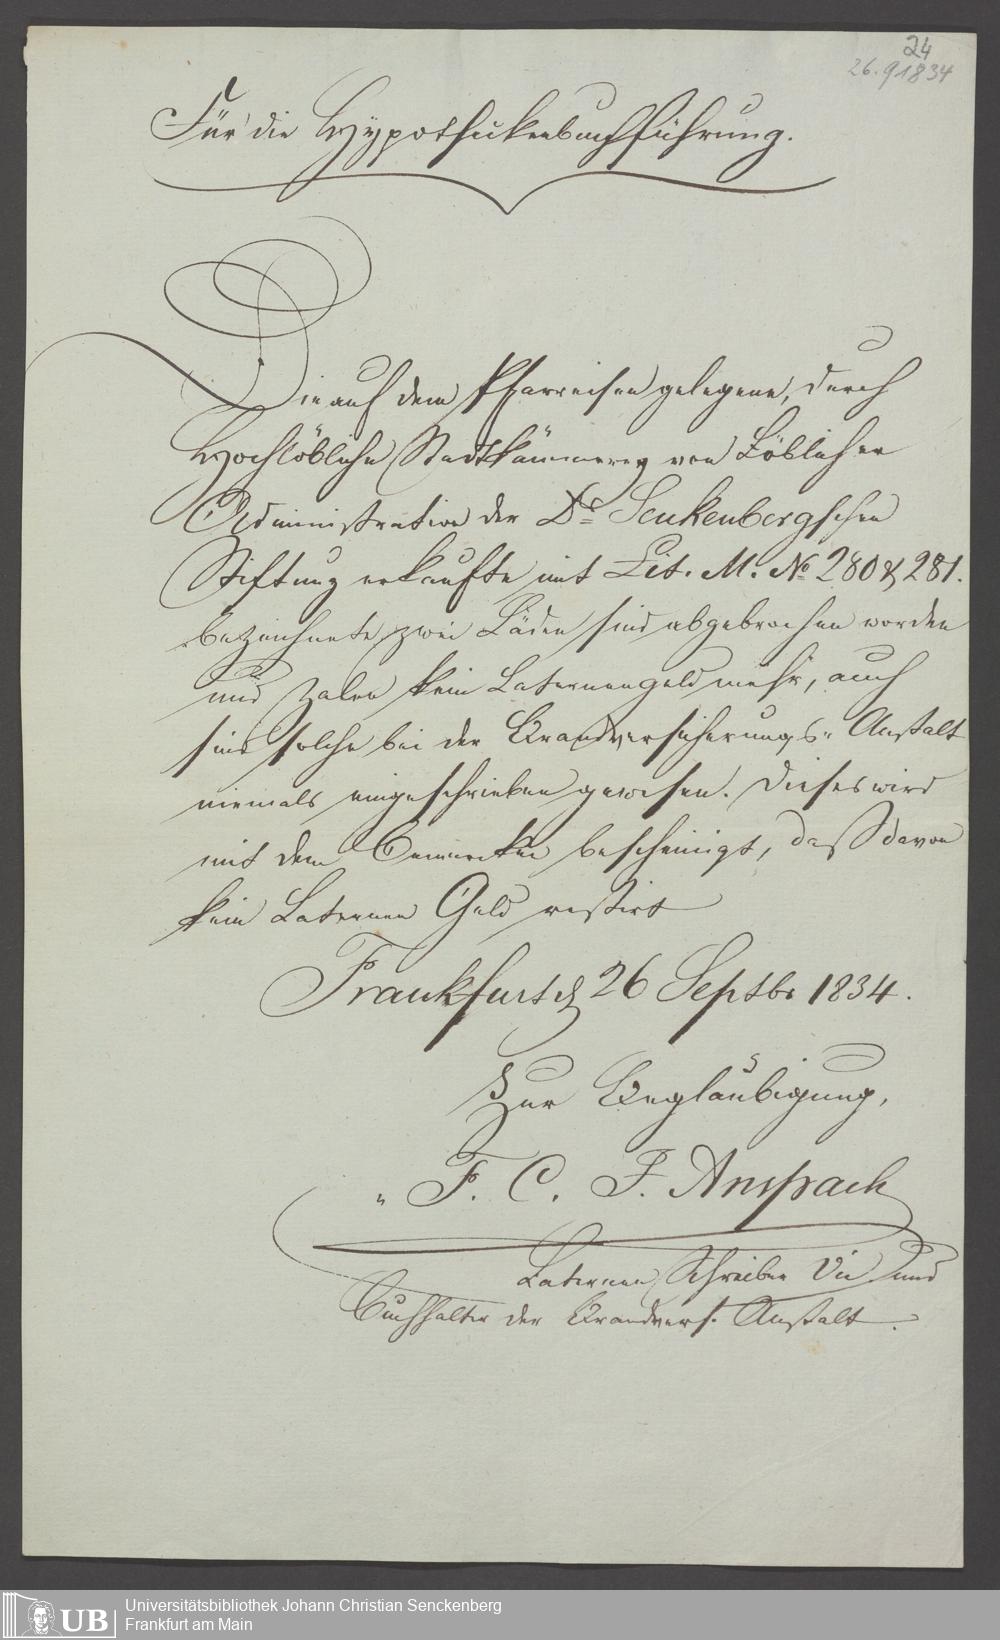 24
26.9 1834
Für die Hypothekenbuchführung.
Die auf dem Pfarreisen gelegene, durch
Hochlöbliche Stadtkämmerey von Löblicher
Administration der Dr Senkenbergschen
Stiftung erkaufte mit Lit. M. No 280 & 281.
bezeichnete zwei Läden sind abgebrochen worden
und zalen kein Laternengeld mehr, auch
sind solche bei der Brandversicherungs-Anstalt
niemals eingeschrieben gewesen. Dieses wird
mit dem Bemerken bescheinigt, daß davon
kein Laternen Geld restirt
Frankfurt d 26 Septbr 1834.
Zur Beglaubigung,
F. C. F. Anspach
Laternen Schreiber und
Buchhalter der Brandvers. Anstalt.
UB
Universitätsbibliothek Johann Christian Senckenberg
Frankfurt am Main